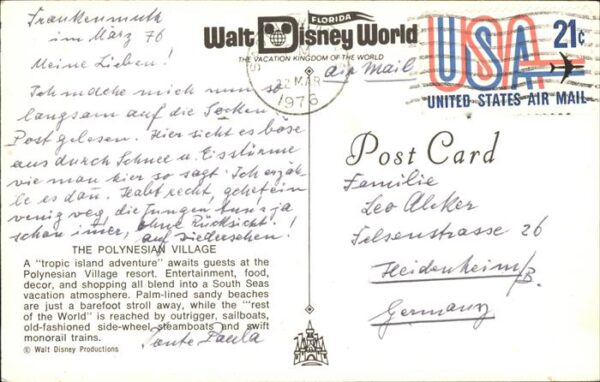 Frankenmuth
im März 76
Meine Lieben!
Ich mache mich nun so
langsam auf die Socken
Post gelesen. Hier sieht es böse
aus durch Schnee u. Eisstürme
wie man hier so sagt. Ich erzäh-
le es dan. Habt recht, geht ein
wenig weg, die Jungen tun's ja
schon immer, ohne Rücksicht!
auf Wiedersehen!
THE POLYNESIAN VILLAGE
A "tropic island adventure" awaits guests at the
Polynesian Village resort. Entertainment, food,
decor, and shopping all blend into a South Seas
vacation atmosphere. Palm-lined sandy beaches
are just a barefoot stroll away, while the "rest
of the World" is reached by outrigger, sailboats,
old-fashioned side-wheel steamboats and swift
monorail trains.
© Walt Disney Productions
Tante Paula
FLORIDA
Walt Disney World
THE VACATION KINGDOM OF THE WORLD
Air Mail
22 MAR
1976
USA
21c
UNITED STATES AIR MAIL
Post Card
Familie
Leo
Felsenstrasse 26
Heidenheim/B.
Germany